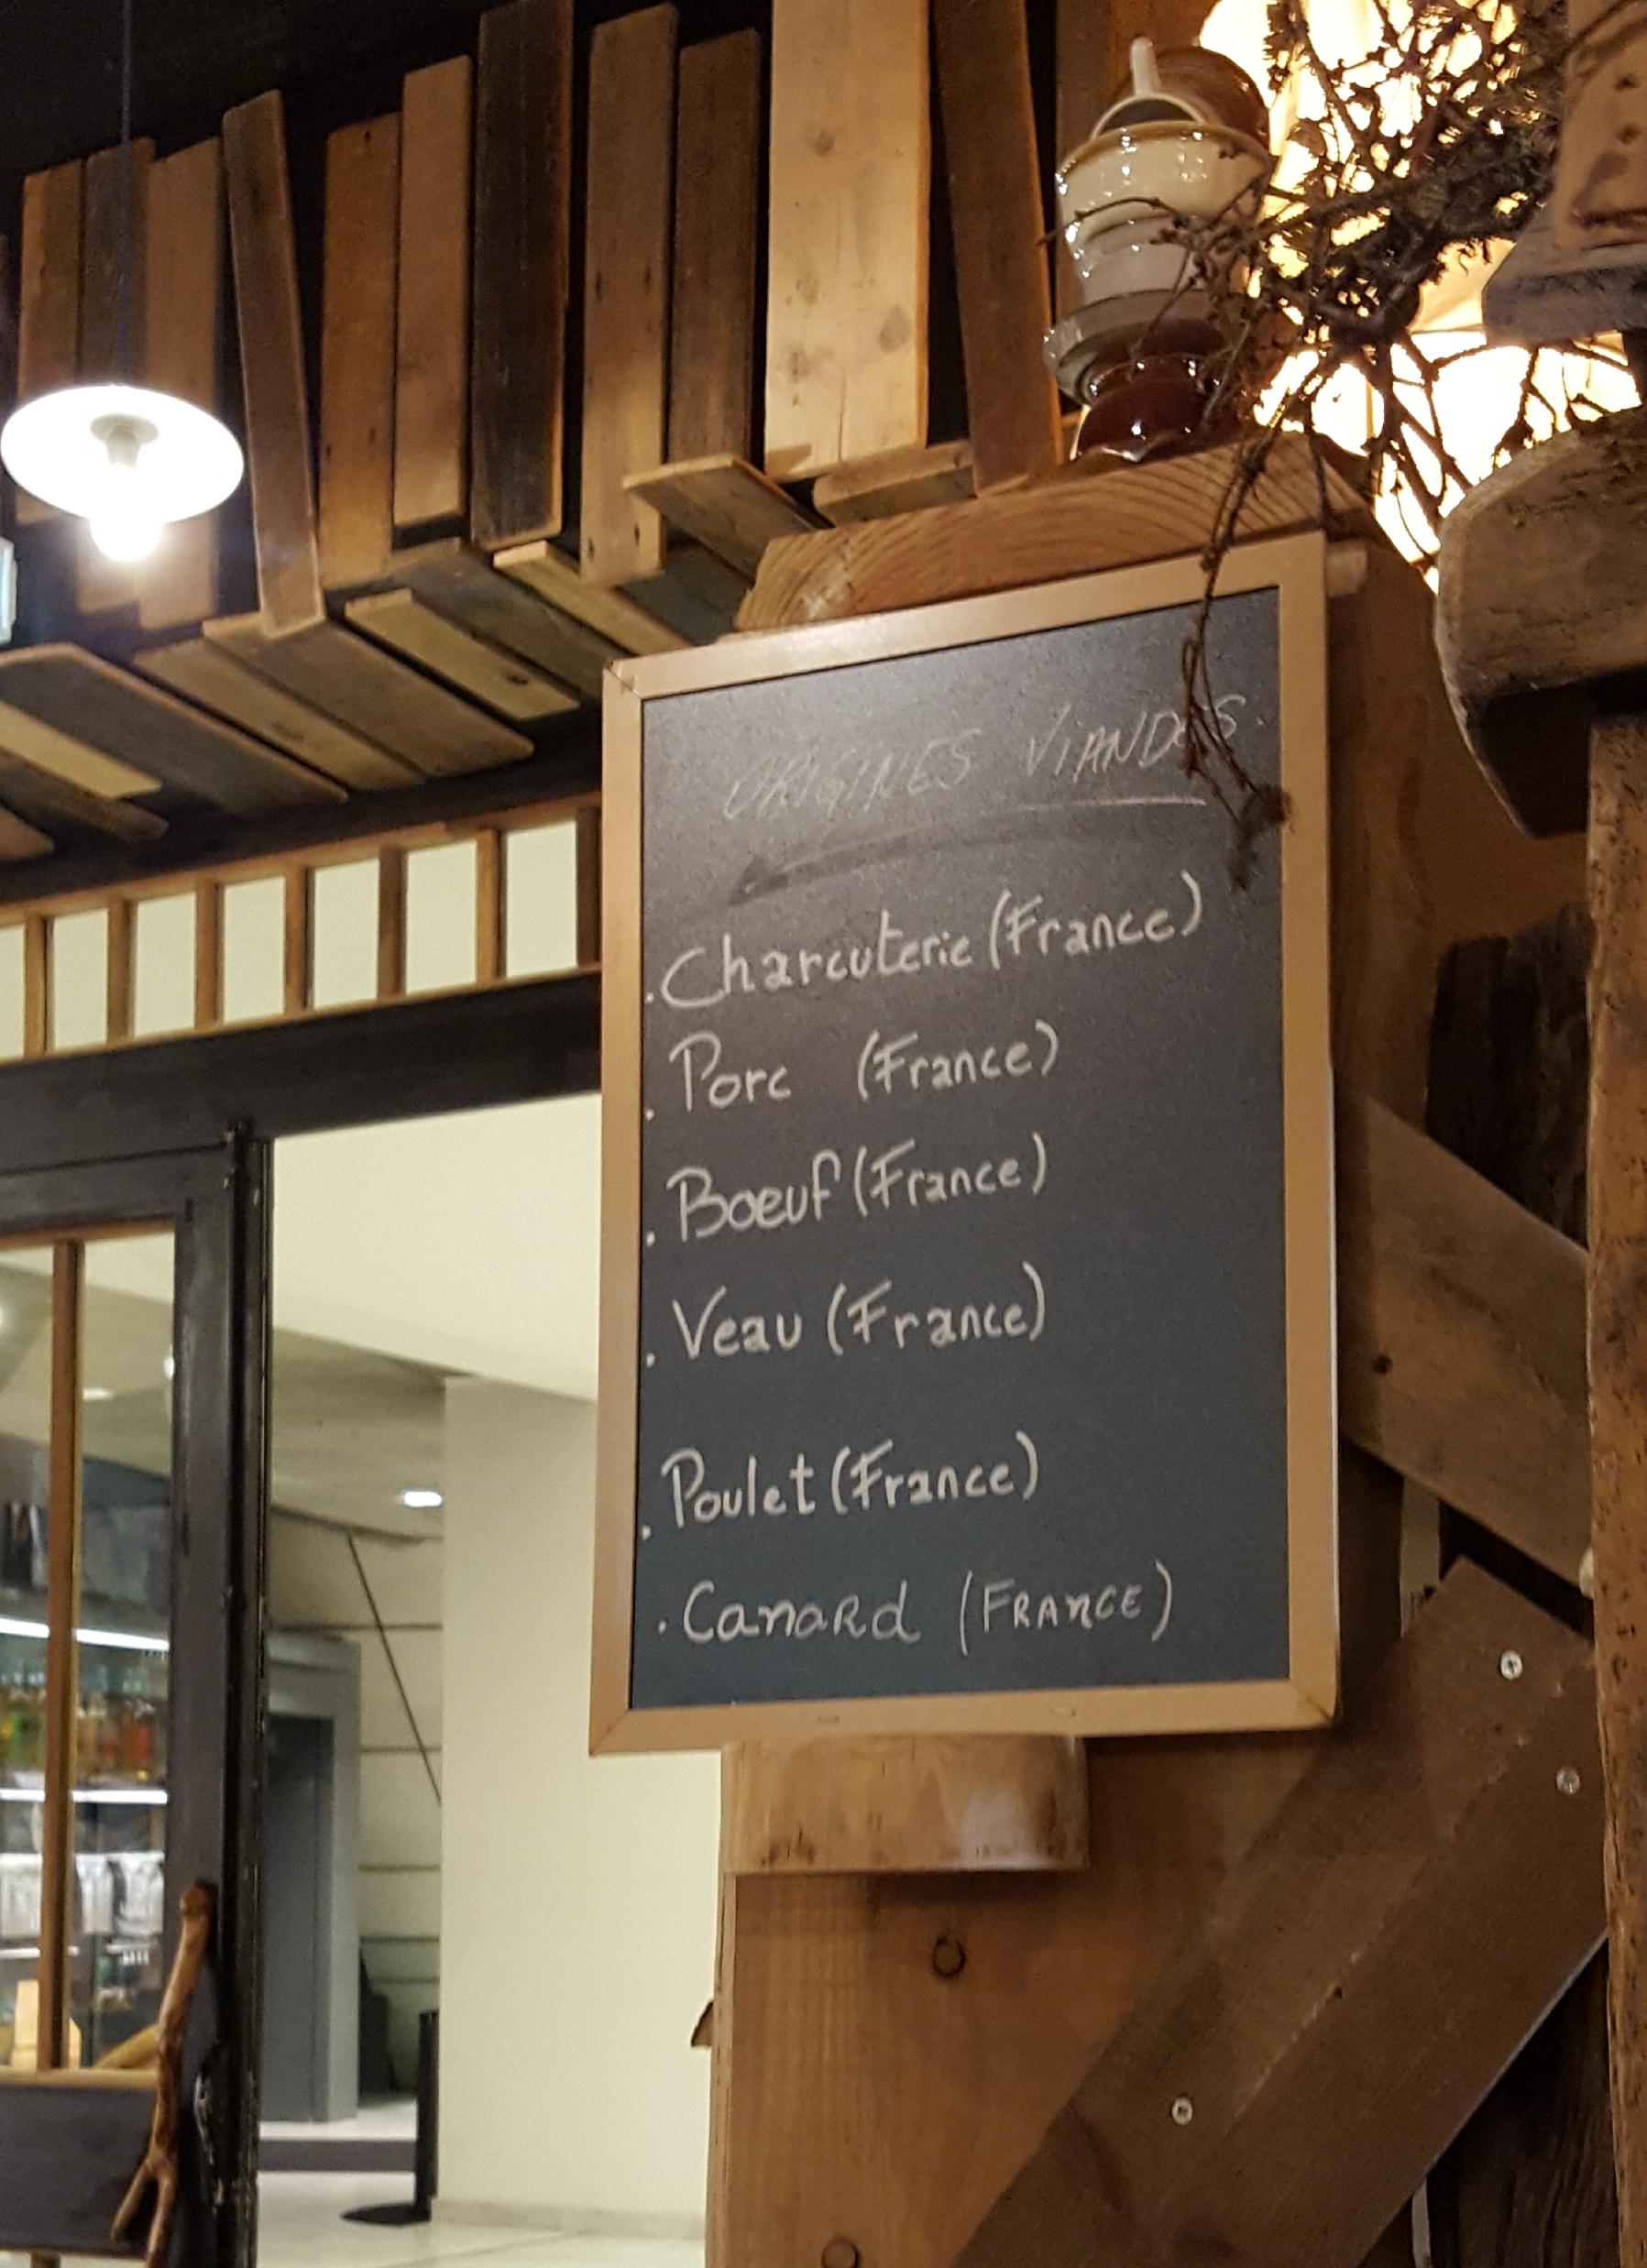 ORIGINES VIANDES
. Charcuterie (France)
. Porc (France)
. Boeuf (France)
. Veau (France)
. Poulet (France)
. Canard (FRANCE)